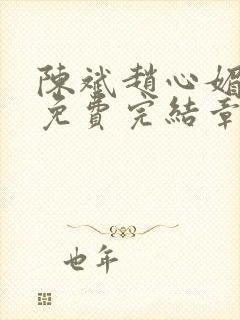 陳斌趙心媚
免費完結章
也年